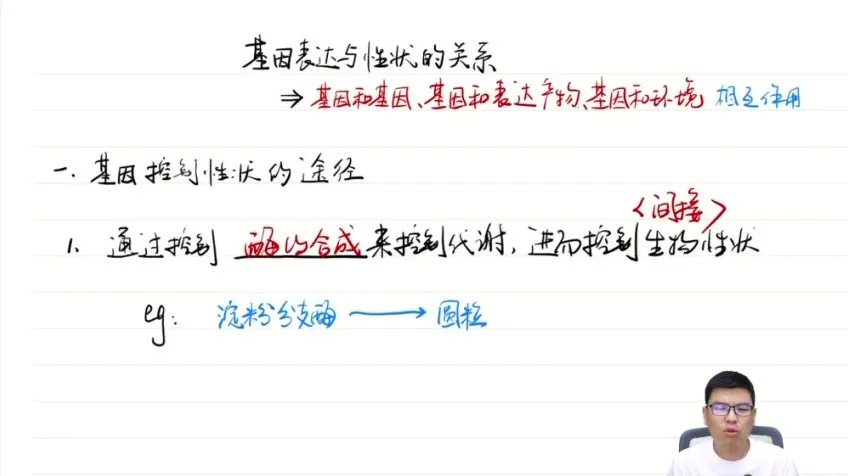 基因表达与性状的关系
⇒ 基因和基因、基因和表达产物、基因和环境 相互作用
一、基因控制性状的途径
<间接>
1. 通过控制 酶的合成 来控制代谢，进而控制生物性状
eg: 淀粉分支酶 → 圆粒